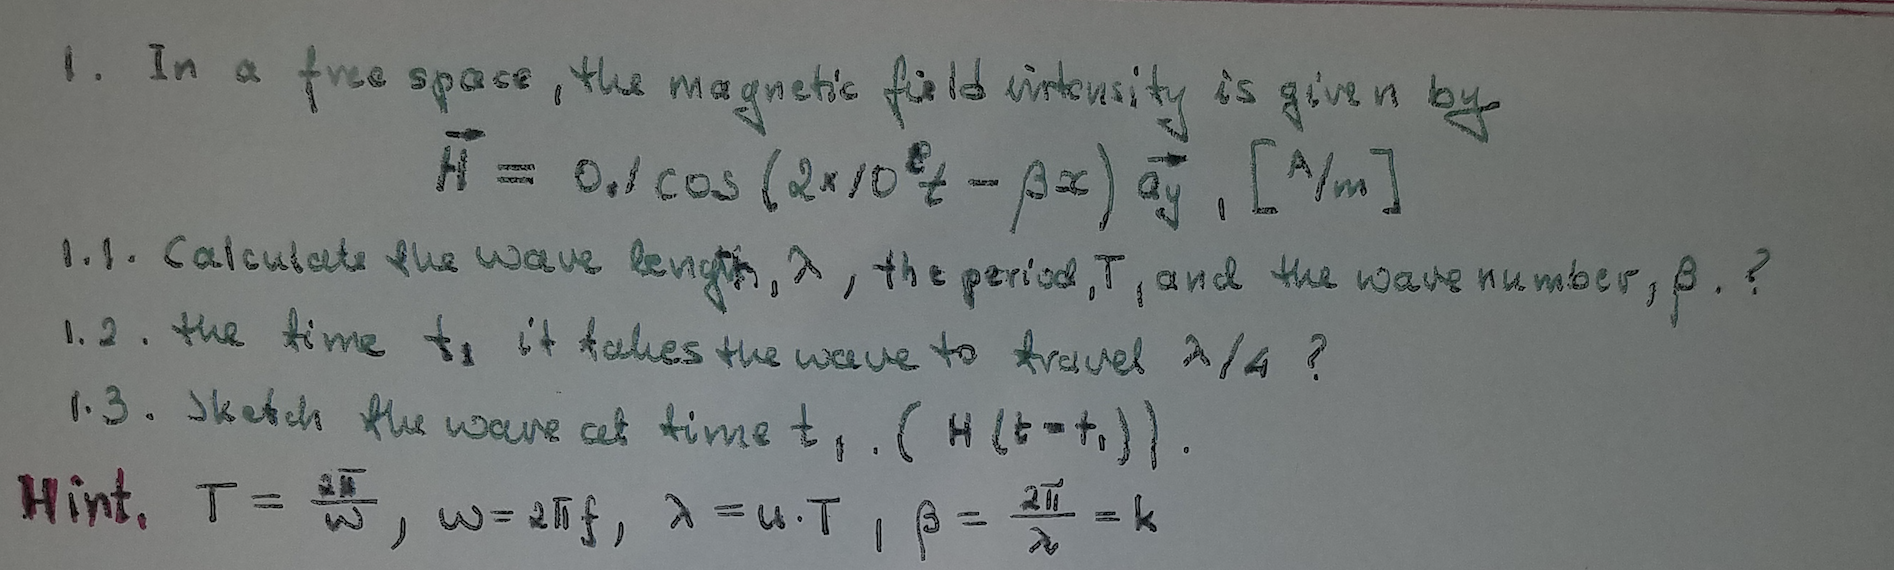 1. In a free space, the magnetic field intensity is given by
H⃗ = 0.1 cos (2×10⁸t - βx) a⃗y, [A/m]
1.1. Calculate the wave length, λ, the period, T, and the wave number, β. ?
1.2. the time t₁ it takes the wave to travel λ/4 ?
1.3. Sketch the wave at time t₁. (H(t=t₁)).
Hint. T = 2π/ω, ω = 2πf, λ = u·T, β = 2π/λ = k